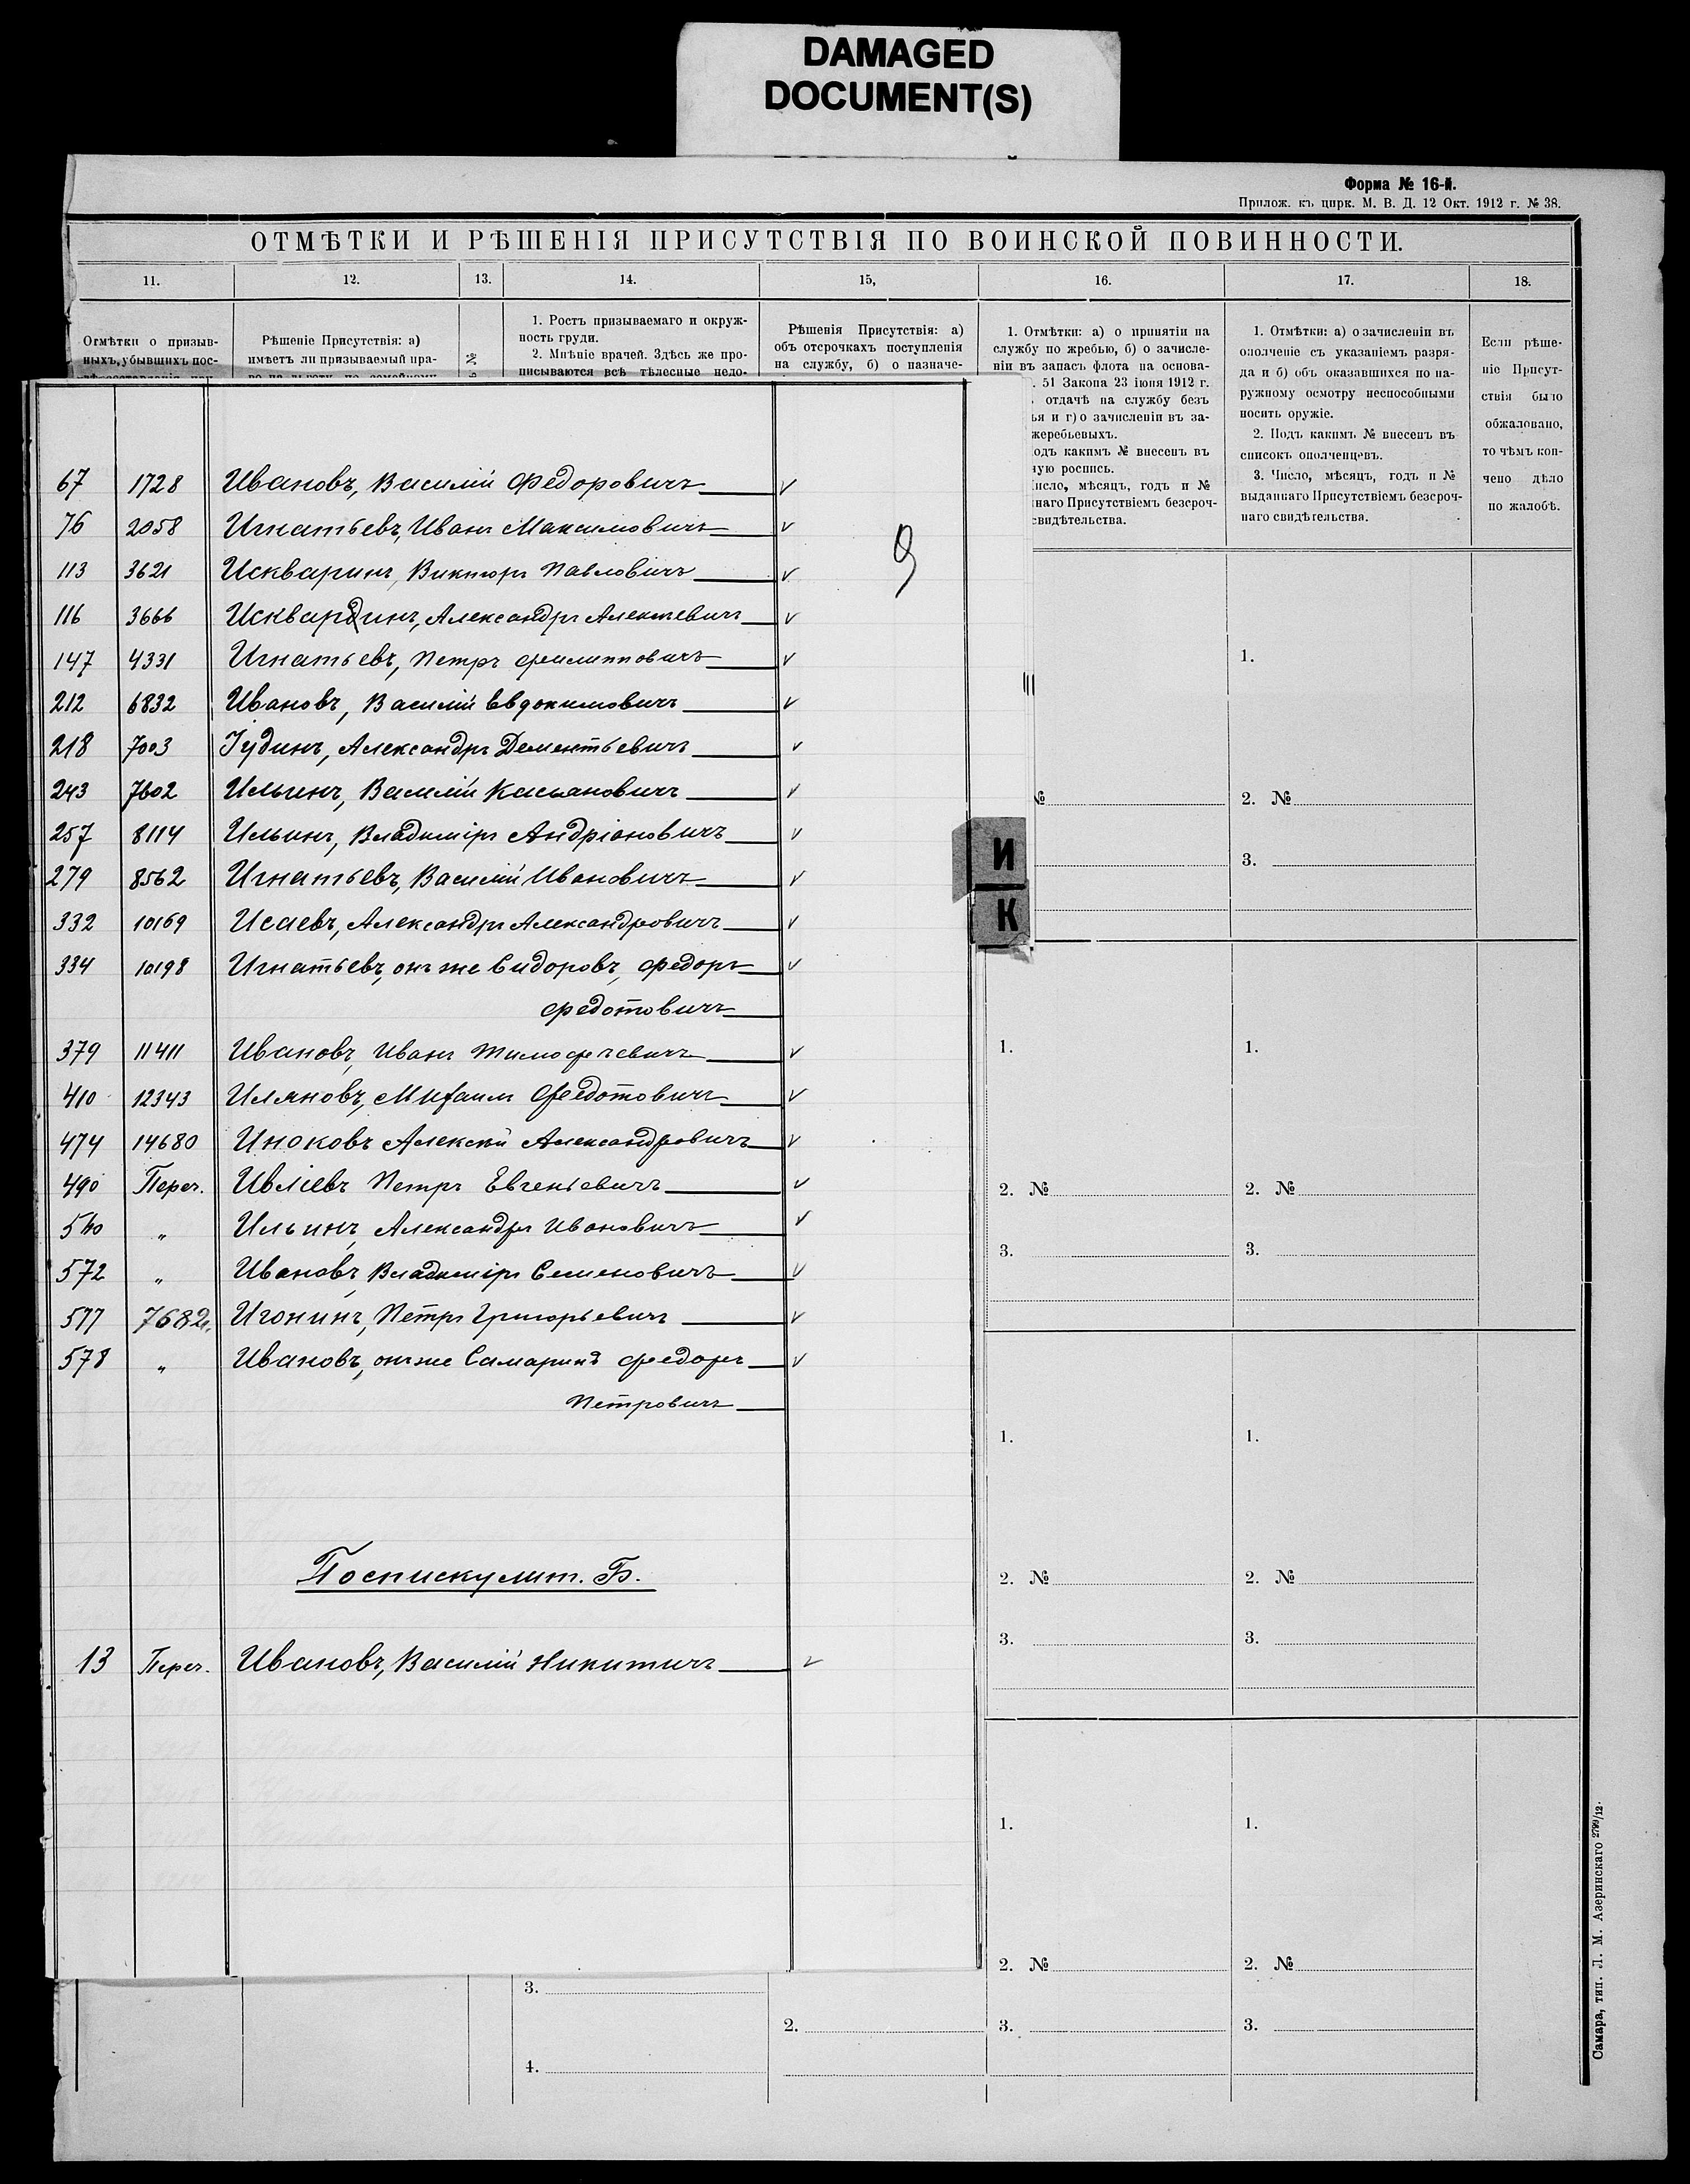 DAMAGED
DOCUMENT(S)
Форма № 16-й.
Прилож. къ цирк. М. В. Д. 12 Окт. 1912 г. № 38.
ОТМѢТКИ И РѢШЕНІЯ ПРИСУТСТВІЯ ПО ВОИНСКОЙ ПОВИННОСТИ.
11. 12. 13. 14. 15, 16. 17. 18.
Отмѣтки о призыв-
ныхъ, убывшихъ пос-
Рѣшеніе Присутствія: а)
имѣетъ ли призываемый пра-
№
1. Ростъ призываемаго и окруж-
ность груди.
2. Мнѣніе врачей. Здѣсь же про-
писываются всѣ тѣлесные недо-
Рѣшенія Присутствія: а)
объ отсрочкахъ поступленія
на службу, б) о назначе-
1. Отмѣтки: а) о принятіи на
службу по жребью, б) о зачисле-
ніи въ запасъ флота на основа-
. 51 Закона 23 іюня 1912 г.
отдачѣ на службу безъ
ья и г) о зачисленіи въ за-
жеребьевыхъ.
одъ какимъ № внесенъ въ
ную роспись.
исло, мѣсяцъ, годъ и №
наго Присутствіемъ безсроч-
свидѣтельства.
1. Отмѣтки: а) о зачисленіи въ
ополченіе съ указаніемъ разря-
да и б) объ оказавшихся по на-
ружному осмотру неспособными
носить оружіе.
2. Подъ какимъ № внесенъ въ
списокъ ополченцевъ.
3. Число, мѣсяцъ, годъ и №
выданнаго Присутствіемъ безсроч-
наго свидѣтельства.
Если рѣше-
ніе Присут-
ствія было
обжаловано,
то чѣмъ кон-
чено дѣло
по жалобѣ.
67 1728 Ивановъ, Василій Федоровичъ
76 2058 Игнатьевъ, Иванъ Максимовичъ
113 3621 Искваринъ, Викторъ Павловичъ
116 3666 Искваринъ, Александръ Алексѣевичъ
147 4331 Игнатьевъ, Петръ Филипповичъ
212 6832 Ивановъ, Василій Евдокимовичъ
218 7003 Іудинъ, Александръ Дементьевичъ
243 7602 Ильинъ, Василій Касьяновичъ
257 8114 Ильинъ, Владиміръ Андріановичъ
279 8562 Игнатьевъ, Василій Ивановичъ
332 10169 Исаевъ, Александръ Александровичъ
334 10198 Игнатьевъ, онъ же Сидоровъ, Федоръ
Федотовичъ
379 11411 Ивановъ, Иванъ Тимофѣевичъ
410 12343 Иляновъ, Михаилъ Федотовичъ
474 14680 Иноковъ Алексѣй Александровичъ
490 Переч. Ивліевъ Петръ Евгеньевичъ
560 „ Ильинъ, Александръ Ивановичъ
572 „ Ивановъ, Владиміръ Семеновичъ
577 7682 Игонинъ, Петръ Григорьевичъ
578 „ Ивановъ, онъ же Самаринъ Федоръ
Петровичъ
По списку лит. Б.
13 Переч. Ивановъ, Василій Никитичъ
9
И
К
1.
№ 2. №
3.
1. 1.
2. № 2. №
3. 3.
1. 1.
2. № 2. №
3. 3.
1. 1.
2. № 2. №
3. 2. 3. 3.
4.
Самара, тип. Л. М. Азеринскаго 2799/12.